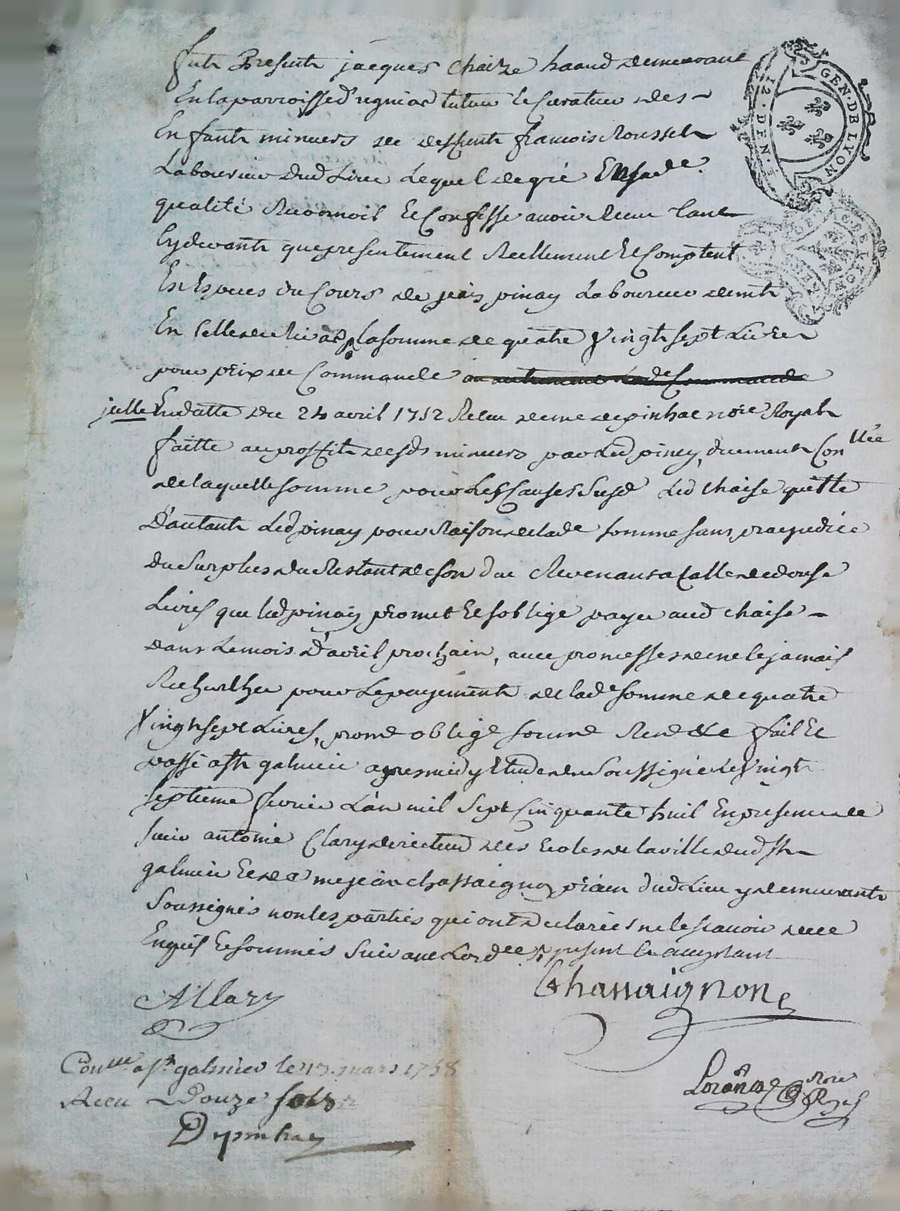 GEN·DE LYON
12·DEN·
fut Present jacques chaize haand demeurant
En la parroisse d'regnias tuteur Et Curateur des
Enfants mineurs de deffunt francois Rousset
Laboureur dud Lieu Lequel de gré En sade
qualité Reconnoit Et Confesse avoir Receu tant
Cy devant que presentement Reellement Et Comptent
En Espces du Cours de jean pinay Laboureur demt
En la somme de quatre Vingt sept Livres
pour prix de Commande
julle En datte du 24 avril 1752 Receu de me depinhac noire Royal
faitte au proffit desds mineurs par Led piney, duement Conllée
de laquelle somme pour Les Causes Susd Led chaise quitte
D'autant Led pinay pour Raison de lade somme sans prejudice
du Surplus du Restant de son due Revenant a Celle de douse
Livres que led pinay promet Et soblige payer aud chaise
dans Le mois D'avril prochain, avec promesses de ne le jamais
Rechercher pour Le payement de lade somme de quatre
Vingt sept Livres, prome oblige soume Rene &c fait Et
passé a st galmier apres midy Etude du Soussigné Le Vingt
septieme fevrier L'an mil Sept Cinquante huit En presence de
sieur antoine Clary directeur des Ecoles de la ville dud st
galmier Et de me jean chassaignon dud Lieu y demeurants
Soussignés non les parties qui ont declarées ne le scavoir de ce
Enquis Et sommés Suivant Lord
A Clary
Chassaignon
Conlle a st galmier le 13 mars 1758
Receu Douze sols
Depinhac
noire
Ryal